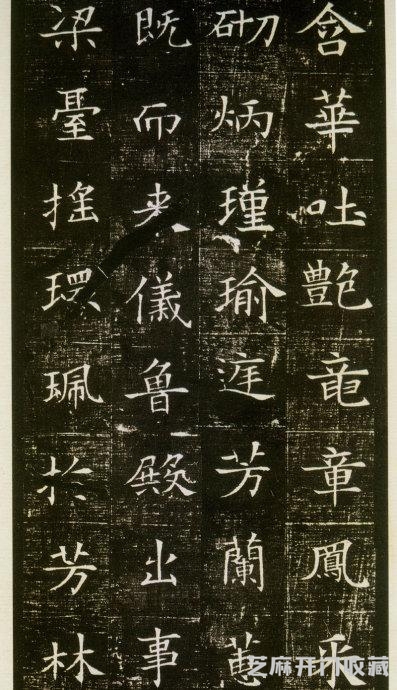 含華吐艷竜章鳳采
砌炳瑾瑜庭芳蘭蕙
既而来儀魯殿出事
梁臺搖環珮於芳林
芝麻开门收藏